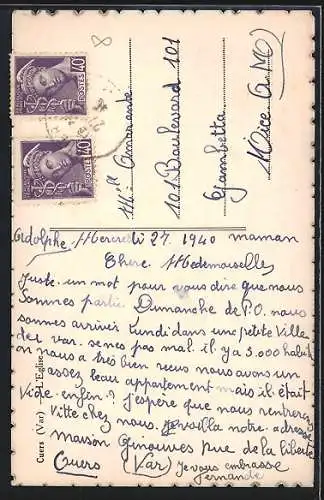 40 POSTES
40 POSTES
8
Mlle Amarante
101 Boulevard 101
Gambetta
Nice A. M)
Adolphe. Mercredi 27. 1940 maman
Chere Medemoiselle
Juste un mot pour vous dire que nous
sommes partie Dimanche de P.O. nous
sommes arrivés Lundi dans une petite Ville
du var. senes pas mal. il y a 5.000 habit
on nous a très bien recus nous avons un
assez beau appartement mais il était
Vide. enfin ? j'espère que nous rentrerez
Vitte chez nous. Je voilla notre adresse
maison Ginouves Rue de la liberté
Cuers (Var) Je vous embrasse
Fernande
Cuers (Var) — L'Eglise